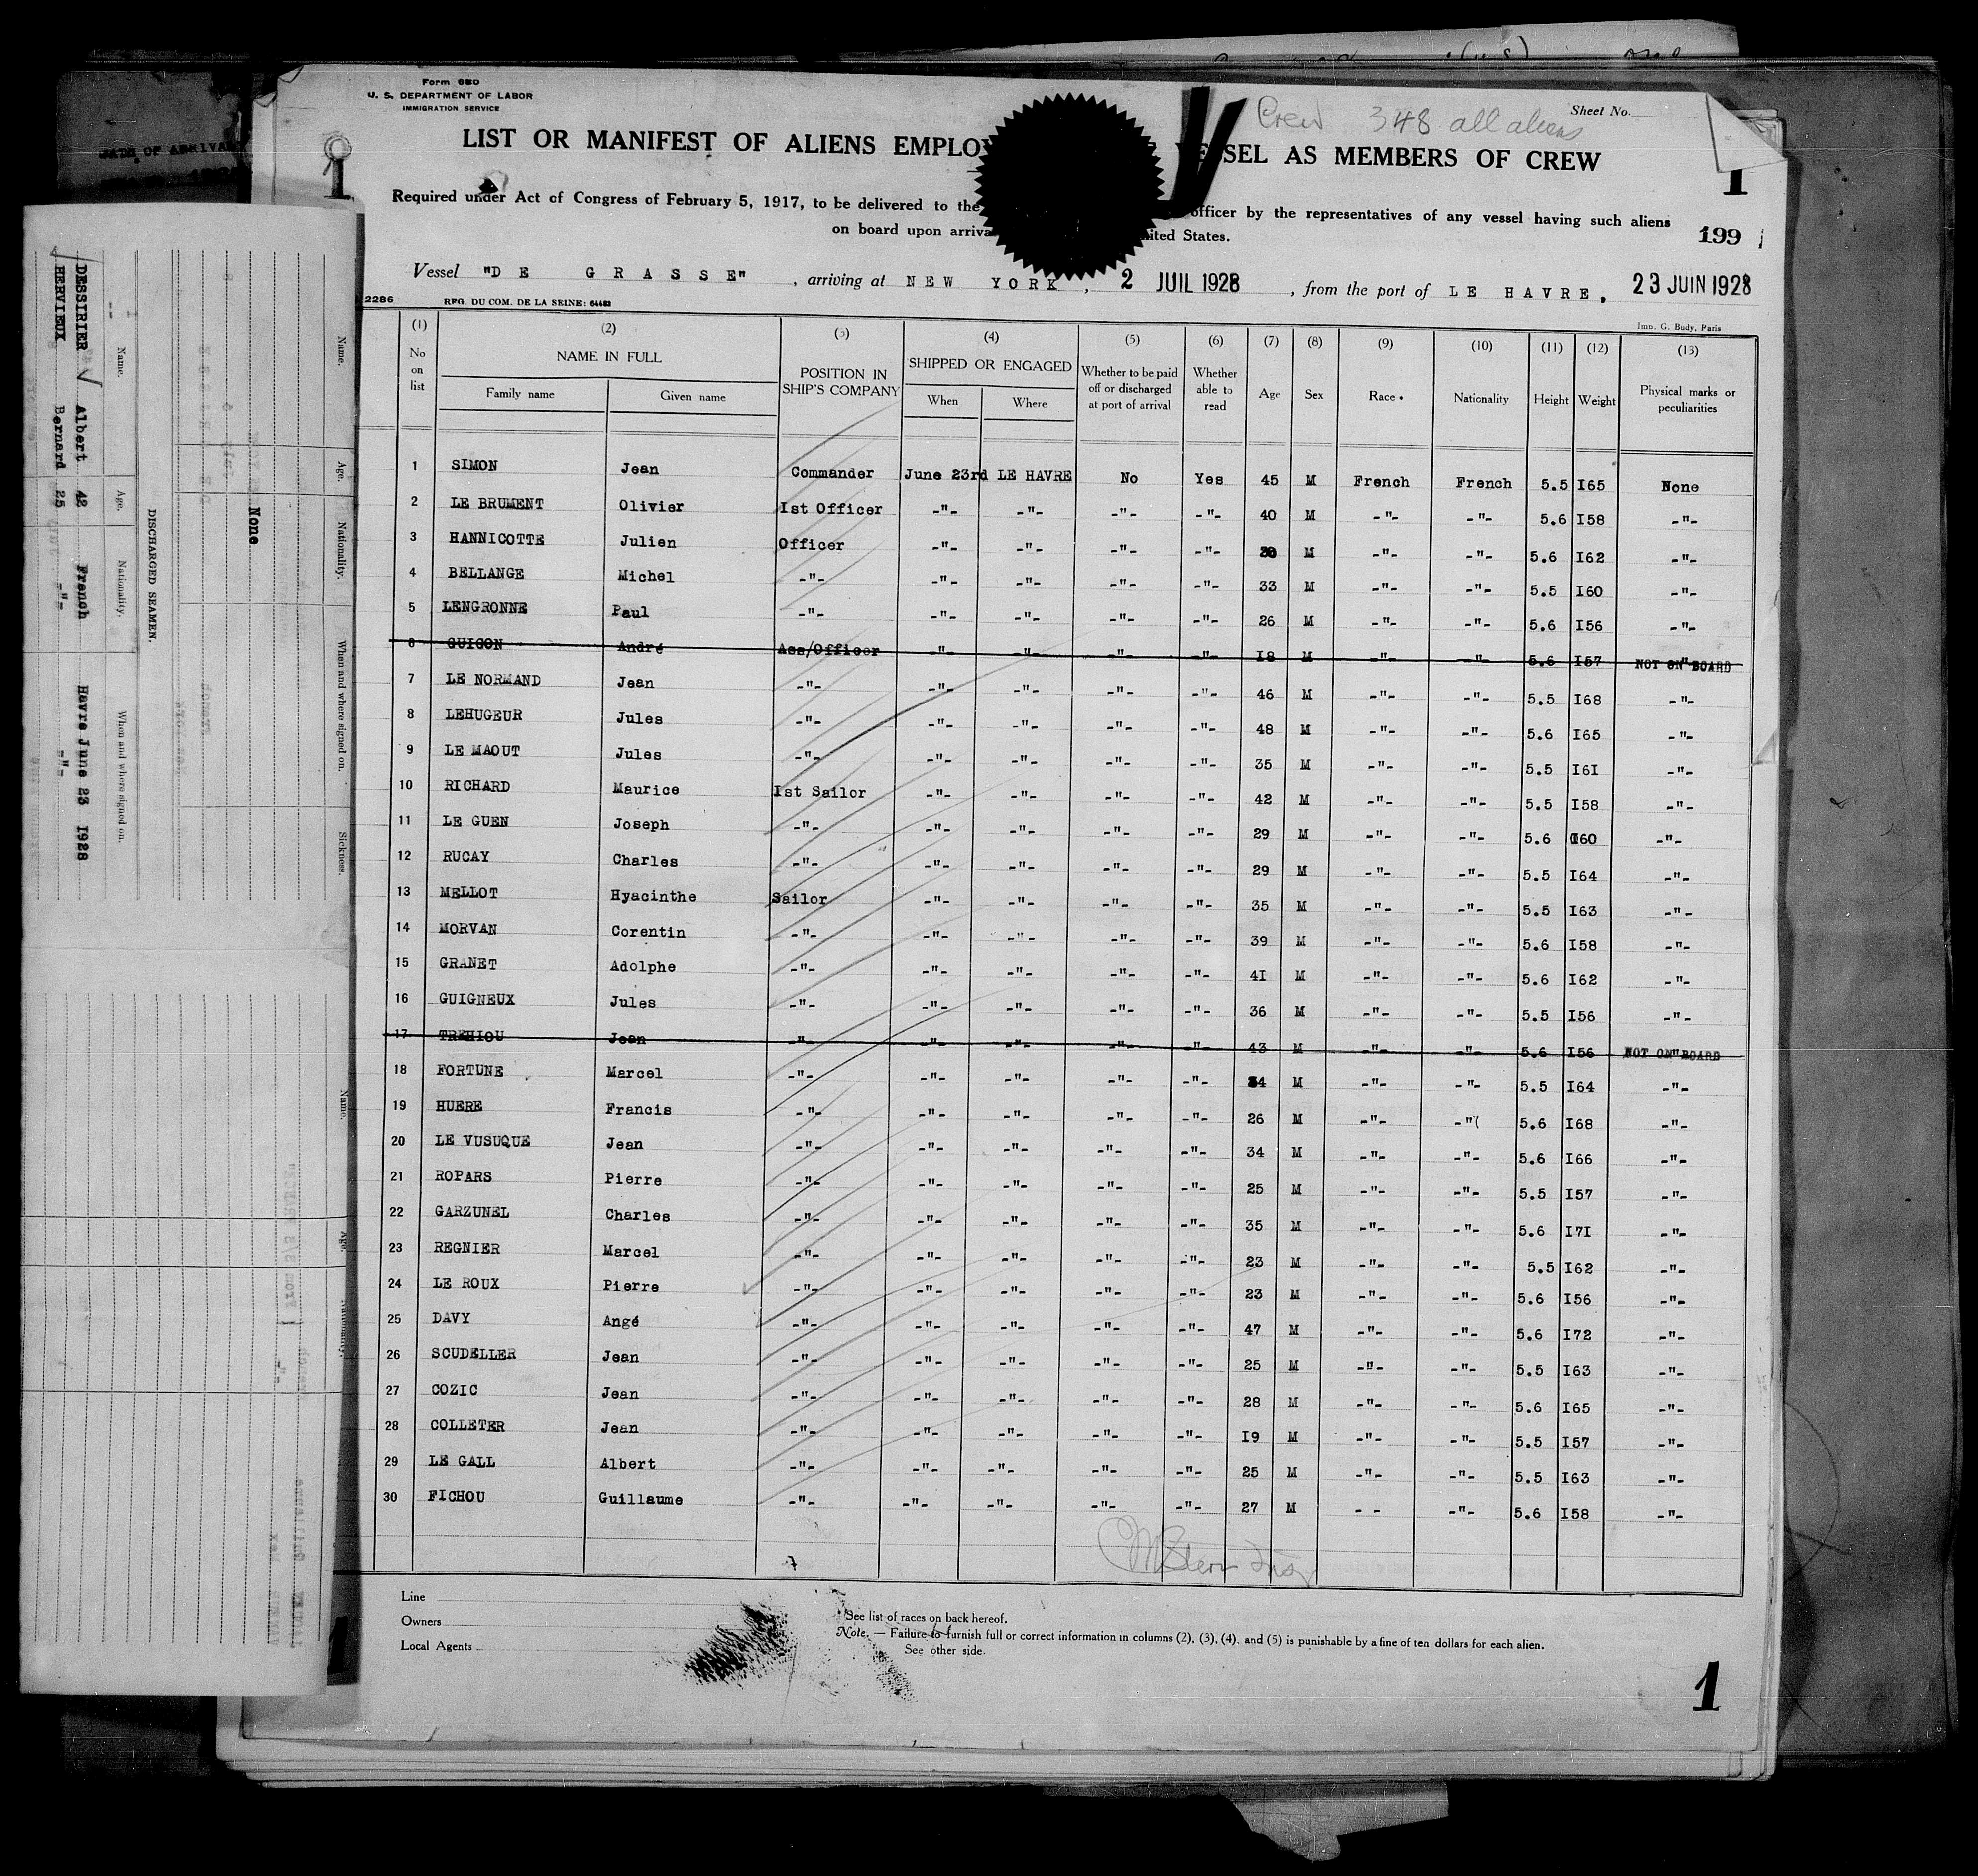 Form 680
U. S. DEPARTMENT OF LABOR
IMMIGRATION SERVICE
Crew 348 all aliens
Sheet No.
LIST OR MANIFEST OF ALIENS EMPLO VESSEL AS MEMBERS OF CREW
1 1
Required under Act of Congress of February 5, 1917, to be delivered to the officer by the representatives of any vessel having such aliens
on board upon arriva United States.
199
Vessel "DE GRASSE" , arriving at NEW YORK , 2 JUIL 1928 , from the port of LE HAVRE. 23 JUIN 1928
2286 REG. DU COM. DE LA SEINE: 64483
Imp. G. Budy, Paris
(1) (2) (3) (4) (5) (6) (7) (8) (9) (10) (11) (12) (13)
No on list NAME IN FULL Family name Given name POSITION IN SHIP'S COMPANY SHIPPED OR ENGAGED When Where Whether to be paid off or discharged at port of arrival Whether able to read Age Sex Race Nationality Height Weight Physical marks or peculiarities
1 SIMON Jean Commander June 23rd LE HAVRE No Yes 45 M French French 5.5 I65 None
2 LE BRUMENT Olivier Ist Officer -"- -"- -"- -"- 40 M -"- -"- 5.6 I58 -"-
3 HANNICOTTE Julien Officer -"- -"- -"- -"- M -"- -"- 5.6 I62 -"-
4 BELLANGE Michel -"- -"- -"- -"- -"- 33 M -"- -"- 5.5 I60 -"-
5 LENGRONNE Paul -"- -"- -"- -"- -"- 26 M -"- -"- 5.6 I56 -"-
6 GUIGON André Ass/Officer -"- -"- -"- -"- I8 M -"- -"- 5.6 I57 NOT ON BOARD
7 LE NORMAND Jean -"- -"- -"- -"- -"- 46 M -"- -"- 5.5 I68 -"-
8 LEHUGEUR Jules -"- -"- -"- -"- -"- 48 M -"- -"- 5.6 I65 -"-
9 LE MAOUT Jules -"- -"- -"- -"- -"- 35 M -"- -"- 5.5 I6I -"-
10 RICHARD Maurice Ist Sailor -"- -"- -"- -"- 42 M -"- -"- 5.5 I58 -"-
11 LE GUEN Joseph -"- -"- -"- -"- -"- 29 M -"- -"- 5.6 I60 -"-
12 RUCAY Charles -"- -"- -"- -"- -"- 29 M -"- -"- 5.5 I64 -"-
13 MELLOT Hyacinthe Sailor -"- -"- -"- -"- 35 M -"- -"- 5.5 I63 -"-
14 MORVAN Corentin -"- -"- -"- -"- -"- 39 M -"- -"- 5.6 I58 -"-
15 GRANET Adolphe -"- -"- -"- -"- -"- 4I M -"- -"- 5.6 I62 -"-
16 GUIGNEUX Jules -"- -"- -"- -"- -"- 36 M -"- -"- 5.5 I56 -"-
17 TREHIOU Jean -"- -"- -"- -"- -"- 43 M -"- -"- 5.6 I56 NOT ON BOARD
18 FORTUNE Marcel -"- -"- -"- -"- -"- 34 M -"- -"- 5.5 I64 -"-
19 HUERE Francis -"- -"- -"- -"- -"- 26 M -"- -"( 5.6 I68 -"-
20 LE VUSUQUE Jean -"- -"- -"- -"- -"- 34 M -"- -"- 5.6 I66 -"-
21 ROPARS Pierre -"- -"- -"- -"- -"- 25 M -"- -"- 5.5 I57 -"-
22 GARZUNEL Charles -"- -"- -"- -"- -"- 35 M -"- -"- 5.6 I7I -"-
23 REGNIER Marcel -"- -"- -"- -"- -"- 23 M -"- -"- 5.5 I62 -"-
24 LE ROUX Pierre -"- -"- -"- -"- -"- 23 M -"- -"- 5.6 I56 -"-
25 DAVY Angé -"- -"- -"- -"- -"- 47 M -"- -"- 5.6 I72 -"-
26 SCUDELLER Jean -"- -"- -"- -"- -"- 25 M -"- -"- 5.5 I63 -"-
27 COZIC Jean -"- -"- -"- -"- -"- 28 M -"- -"- 5.6 I65 -"-
28 COLLETER Jean -"- -"- -"- -"- -"- I9 M -"- -"- 5.5 I57 -"-
29 LE GALL Albert -"- -"- -"- -"- -"- 25 M -"- -"- 5.5 I63 -"-
30 FICHOU Guillaume -"- -"- -"- -"- -"- 27 M - - -"- 5.6 I58 -"-
Line
Owners
Local Agents
See list of races on back hereof.
Note. — Failure to furnish full or correct information in columns (2), (3), (4), and (5) is punishable by a fine of ten dollars for each alien.
See other side.
1
DATE OF ARRIVAL
Name. Age. Nationality. When and where signed on. Sickness.
None
DISCHARGED SEAMEN.
Name. Age. Nationality. When and where signed on.
DESSIRIER Albert 42 French Havre June 23 I928
HERVIEUX Bernard 25 -"- -"-
Name. Age. Nationality.